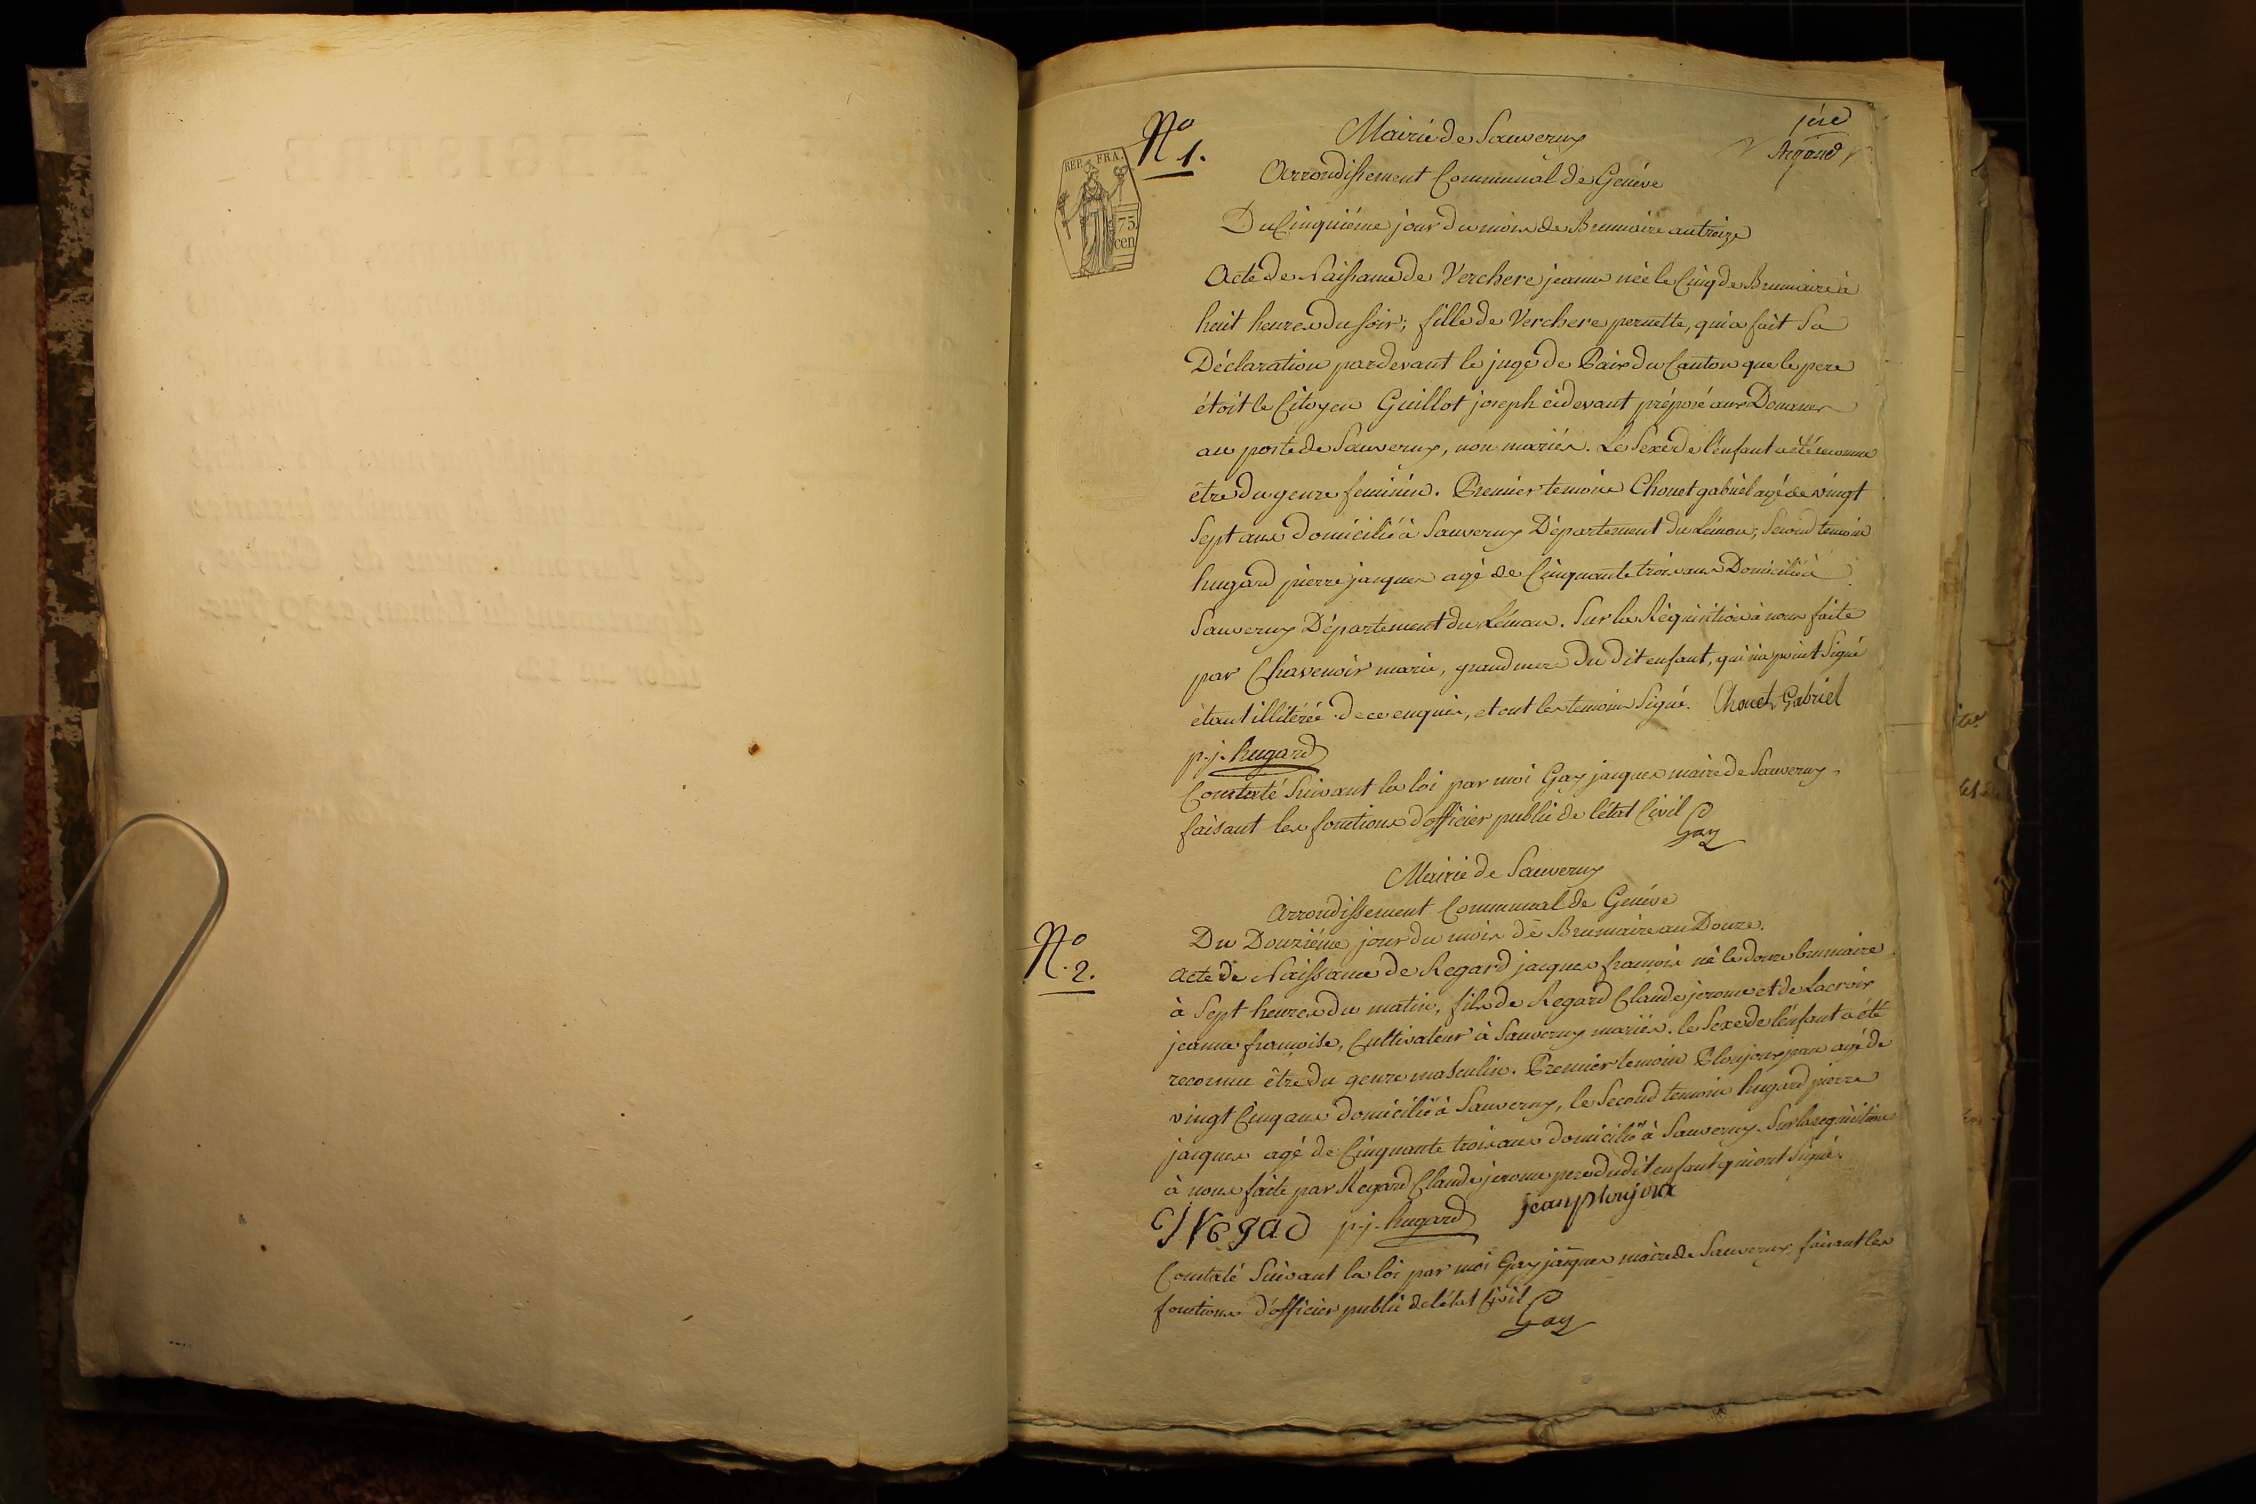 1ere
Argand
No 1.
REP. FRA.
75
cen
Mairie de Sauverny
Arrondissement Communal de Genève
Du Cinquième jour du mois de Brumaire an treize
Acte de Naissance de Verchere jeanne née le Cinq de Brumaire à
huit heures du soir; fille de Verchere pernette, qui a fait Sa
Déclaration pardevant le juge de Paix du Canton que le pere
étoit le Citoyen Guillot joseph cidevant préposé aux Douanes
au poste de Sauverny, non mariés. Le Sexe de l'enfant a été reconnu
être du genre feminin. Premier temoin Chouet gabriel agé de vingt
Sept ans domicilié à Sauverny Département du Léman; Second temoin
hugard pierre jacques agé de Cinquante trois ans Domicilié à
Sauverny Département du Léman. Sur la Réquisition à nous faite
par Chavenoir marie, grand mere du dit enfant, qui n'a point Signé
étant illitérée de ce enquis, et ont les temoins Signé. Chouet Gabriel
p.j. hugard
Constaté Suivant la loi par moi Gay jacques maire de Sauverny,
faisant les fonctions d'officier public de l'état Civil
Gay
Mairie de Sauverny
Arrondissement Communal de Genève
No. 2.
Du Douzième jour du mois de Brumaire an Douze.
Acte de Naissance de Regard jacques françois né le douze brumaire
à Sept heures du matin, fils de Regard Claude jerome et de Lacroix
jeanne françoise, Cultivateur à Sauverny mariés. le Sexe de l'enfant a été
reconnu être du genre masculin. Premier temoin Plonjoux jean agé de
vingt Cinq ans domicilié à Sauverny, le Second temoin hugard pierre
jacques agé de Cinquante trois ans domicilié à Sauverny. Sur la requisition
à nous faite par Regard Claude jerome pere du dit enfant qui ont Signé.
p.j. hugard
Constaté Suivant la loi par moi Gay jacques maire de Sauverny faisant les
fonctions d'officier public de l'état Civil
Gay